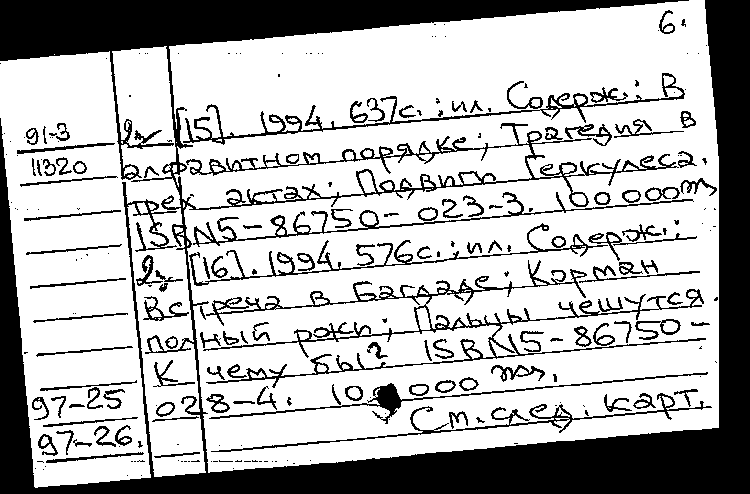 6.
91-3 2э [15]. 1994. 637с.; ил. Содерж.: В
11320 алфавитном порядке; Трагедия в
трех актах; Подвиги Геркулеса.
ISBN5-86750-023-3. 100 000 экз
2э [16]. 1994. 576с.; ил. Содерж.:
Встреча в Багдаде; Карман
полный ржи; Пальцы чешутся.
К чему бы? ISBN5-86750-
97-25 028-4. 100 000 экз.
97-26. См. след. карт.